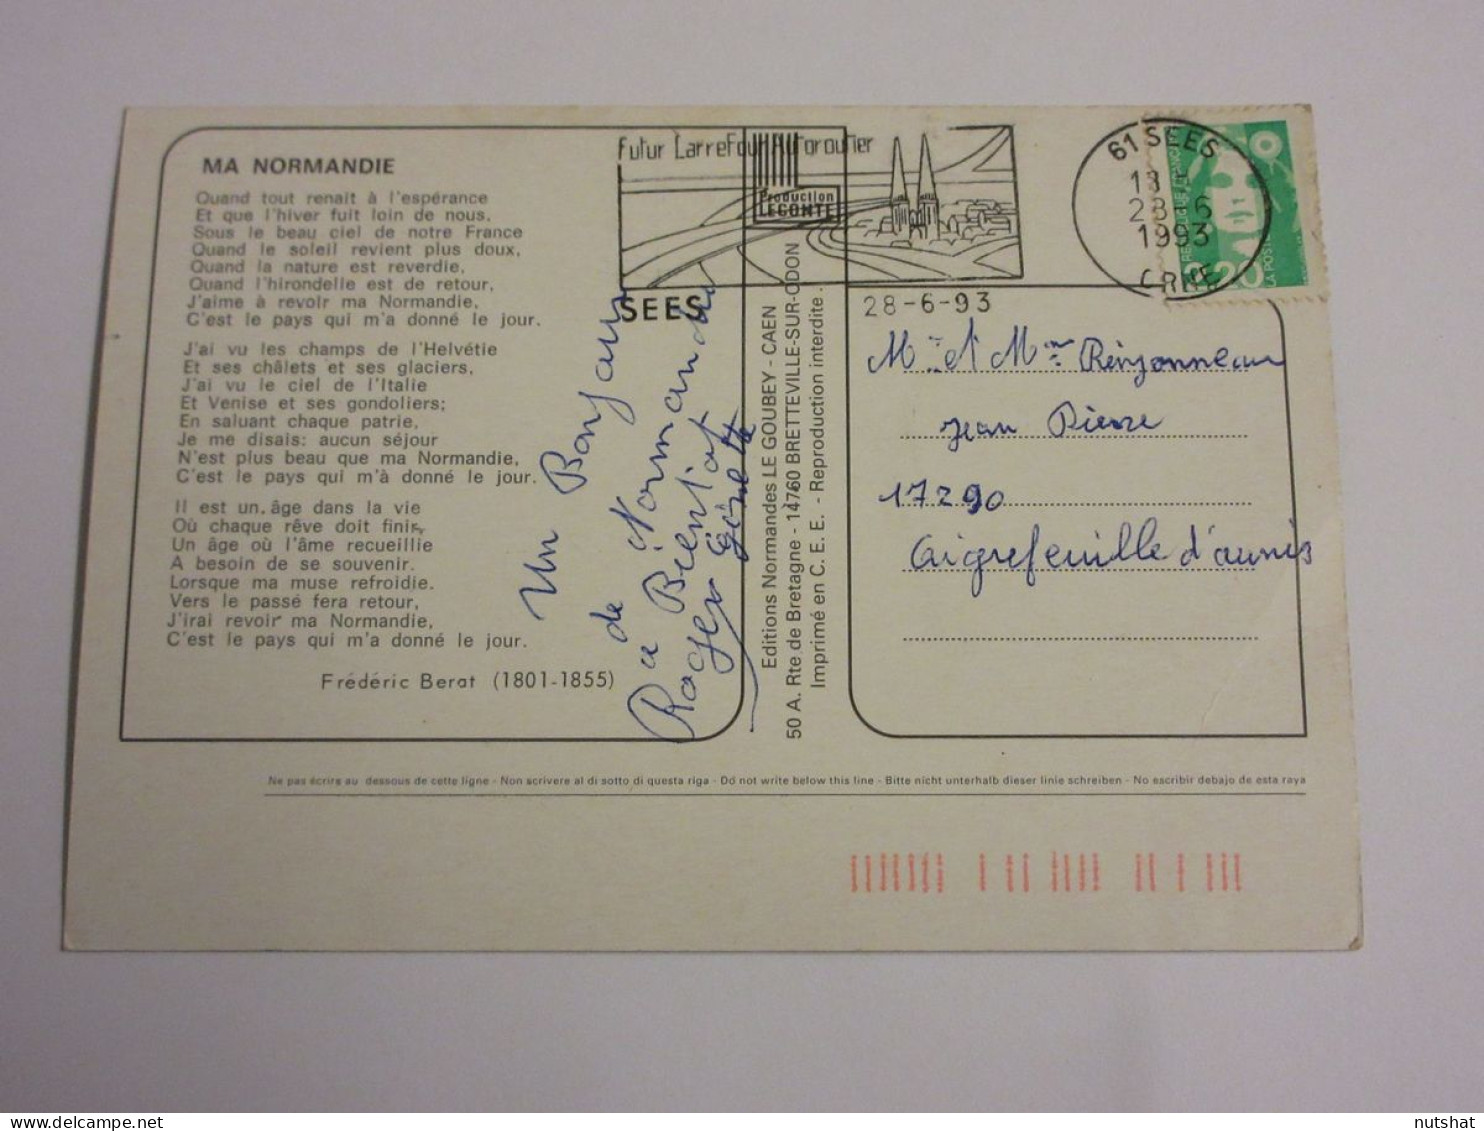 MA NORMANDIE
Quand tout renaît à l'espérance
Et que l'hiver fuit loin de nous,
Sous le beau ciel de notre France
Quand le soleil revient plus doux,
Quand la nature est reverdie,
Quand l'hirondelle est de retour,
J'aime à revoir ma Normandie,
C'est le pays qui m'a donné le jour.
J'ai vu les champs de l'Helvétie
Et ses châlets et ses glaciers,
J'ai vu le ciel de l'Italie
Et Venise et ses gondoliers;
En saluant chaque patrie,
Je me disais: aucun séjour
N'est plus beau que ma Normandie,
C'est le pays qui m'à donné le jour.
Il est un âge dans la vie
Où chaque rêve doit finir,
Un âge où l'âme recueillie
A besoin de se souvenir.
Lorsque ma muse refroidie.
Vers le passé fera retour,
J'irai revoir ma Normandie,
C'est le pays qui m'a donné le jour.
Frédéric Berat (1801-1855)
Un Bonjour
de Normandie
a Bientot
Roger Ginette
Editions Normandes LE GOUBEY - CAEN
50 A. Rte de Bretagne - 14760 BRETTEVILLE-SUR-ODON
Imprimé en C. E. E. - Reproduction interdite
Futur Carrefour Autoroutier
Production
LECONTE
SEES
61 SEES
1993
ORNE
LA POSTE
28-6-93
Mr et Mme
Jean Pierre
17290
Aigrefeuille d'aunis
Ne pas écrire au dessous de cette ligne - Non scrivere al di sotto di questa riga - Do not write below this line - Bitte nicht unterhalb dieser linie schreiben - No escribir debajo de esta raya
nutshat